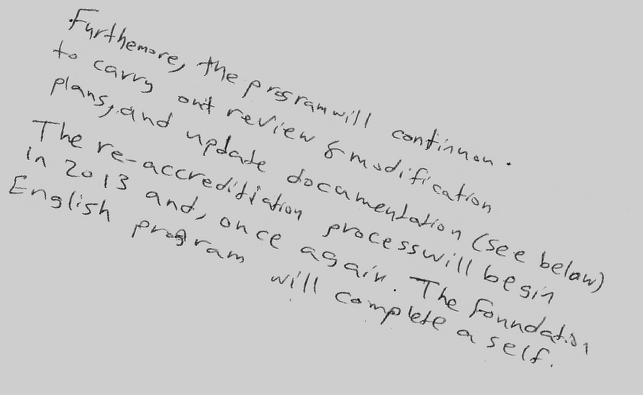 Furthemore, the program will continon.
to carry out review & modification
plans, and update documentation (see below)
The re-accreditiation process will begin
in 2013 and, once again. The Foundation
English program will complete a self.